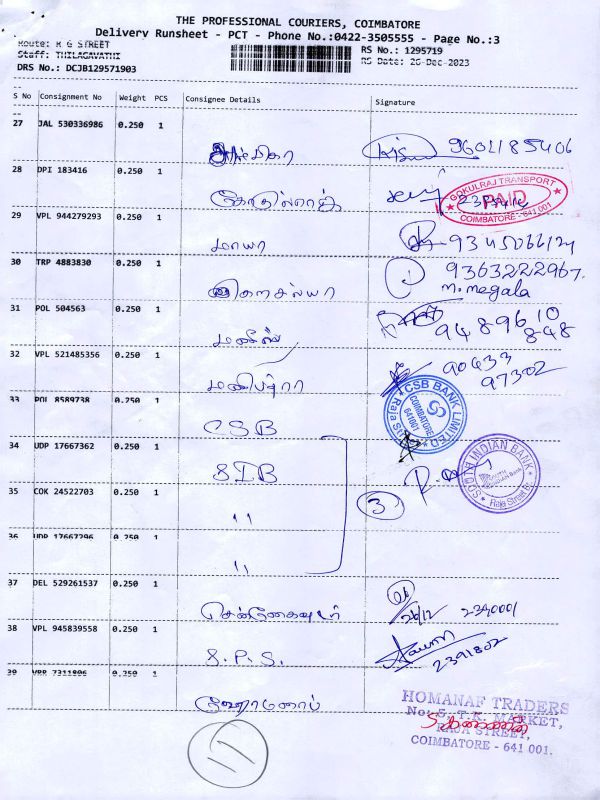 THE PROFESSIONAL COURIERS, COIMBATORE
Delivery Runsheet - PCT - Phone No.:0422-3505555 - Page No.:3
Route: M G STREET
Staff: THILAGAVATHI
DRS No.: DCJB129571903
RS No.: 1295719
RS Date: 26-Dec-2023
S No Consignment No Weight PCS Consignee Details Signature
27 JAL 530336986 0.250 1
9601185406
28 DPI 183416 0.250 1
GOKULRAJ TRANSPORT
PAID
COIMBATORE - 641 001
29 VPL 944279293 0.250 1
மாயா
30 TRP 4883830 0.250 1
9363222967.
m. megala
31 POL 504563 0.250 1
9489610
848
32 VPL 521485356 0.250 1
90433
97302
33 POL 8589738 0.250 1
CSB
CSB BANK LIMITED
COIMBATORE
641001
34 UDP 17667362 0.250 1
SIB
SOUTH INDIAN BANK
35 COK 24522703 0.250 1
"
3
36 UDP 17667296 0.250 1
"
37 DEL 529261537 0.250 1
26/12
2390001
38 VPL 945839558 0.250 1
S.P.S.
2391802
39 VRR 7311806 0.250 1
HOMANAF TRADERS
No: 5, T.K. MARKET,
RAJA STREET,
COIMBATORE - 641 001.
11